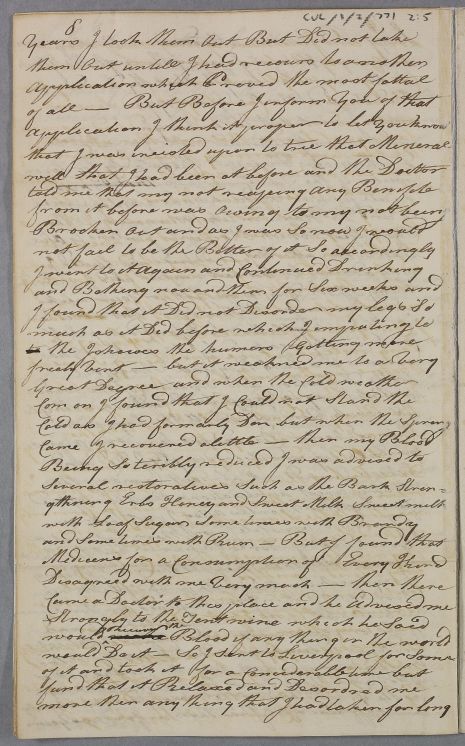 8
CUL/1/2/771 2:5
Years I took them out But Did not take
them out untill I had recours to another
Application which Proved the most fattal
of all — But Before I inform You of that
Application I think it proper to let You know
that I was incisted upon to trie that Mineral
well that I had been at before and the Doctor
told me that my not receiving any Benifite
from it before was owing to my not being
Brocken out and as I was So now I would
not fail to be the Better of it So accordingly
I went to it Again and Continued Drinking
and Bathing now and then for Six weeks and
I found that it Did not Disorder my leg's So
much as it Did before which I imputing to
to the Ishowes the humors Getting more
frealy vent — but it weakned me to a Very
Great Degree and when the Cold weather
Com on I found that I Could not Stand the
Cold as I had formarly Don but when the Spring
Came I recovered a little — then my Blood
Being So teribly reduced I was advised to
Several restoratives Such as the Bark Stren=
gthning Erbs Honey and Sweet Milk Sweet milk
with Loaf Sugar Some times with Brandy
and Some times with Rum — But I found that
Medicens for a Consumption of Every Kind
Disagreed with me Very much — then there
Came a Doctor to this place and he Advised me
Strongly to the Tent wine which he Said
would the Blood if any thing in the world
would Do it — So I Sent to Liverpool for Some
of it and took it for a Considerable time but
fund that it Relaxed and Desordred me
more then any thing that I had taken for long